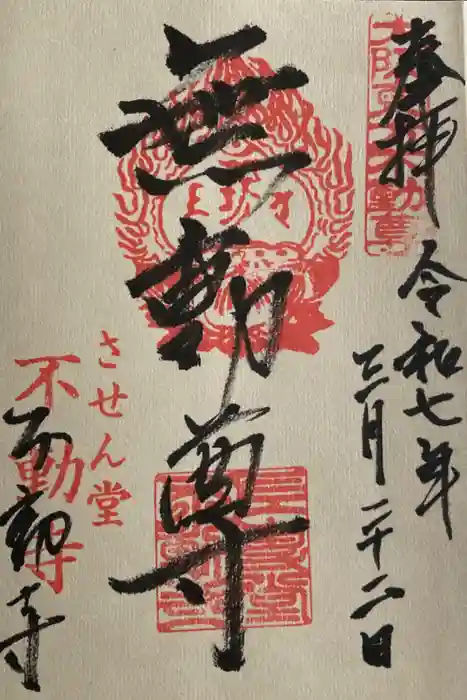 奉拝
令和七年
十二月二十二日
無動尊
させん堂
不動寺
不動寺